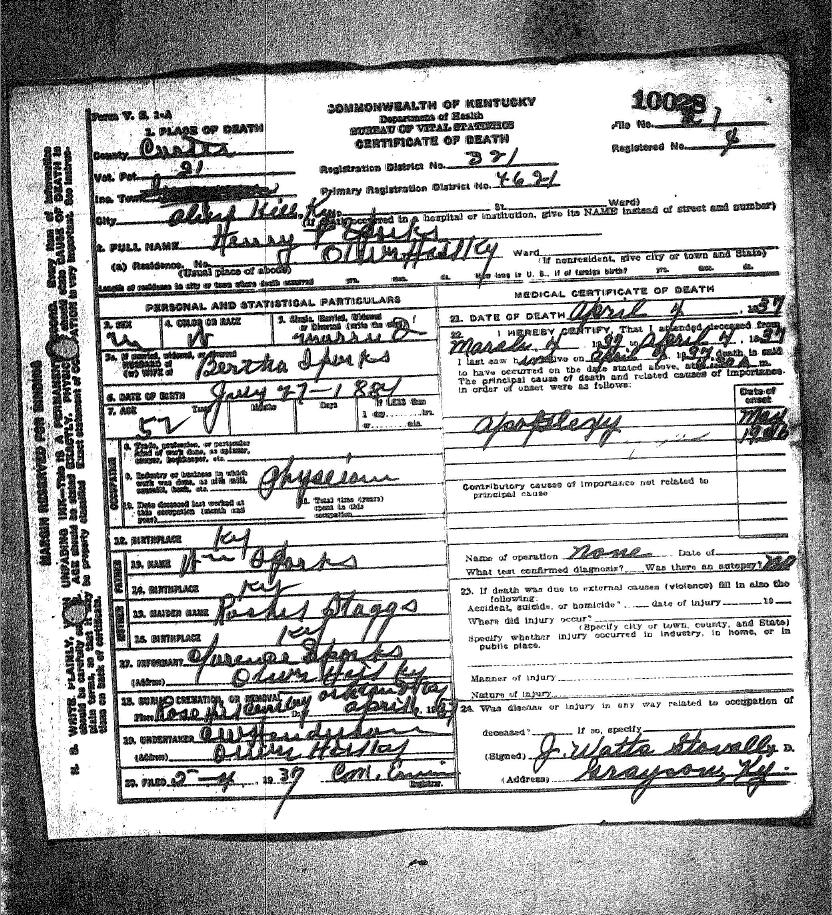 Form V. S. 1-A
COMMONWEALTH OF KENTUCKY
Department of Health
BUREAU OF VITAL STATISTICS
CERTIFICATE OF DEATH
10028
File No.
Registered No. 4
1. PLACE OF DEATH
County Carter
Vot. Pct 21
Inc. Town
City Olive Hill, Ky
Registration District No. 321
Primary Registration District No. 4621
No. St. Ward)
(If death occurred in a hospital or institution, give its NAME instead of street and number)
2. FULL NAME Henry P Sparks
(a) Residence. No. Olive Hill Ky Ward
(Usual place of abode) (If nonresident, give city or town and State)
Length of residence in city or town where death occurred yrs. mos. ds. How long in U. S., if of foreign birth? yrs. mos. ds.
PERSONAL AND STATISTICAL PARTICULARS
3. SEX M
4. COLOR OR RACE W
5. Single, Married, Widowed or Divorced (write the word)
5a. If married, widowed, or divorced
HUSBAND of
(or) WIFE of Bertha Sparks
6. DATE OF BIRTH July 27-1884
7. AGE 52 Years Months Days If LESS than
1 day, hrs.
or min.
OCCUPATION
8. Trade, profession, or particular kind of work done, as spinner, sawyer, bookkeeper, etc.
9. Industry or business in which work was done, as silk mill, sawmill, bank, etc. Physician
10. Date deceased last worked at this occupation (month and year)
11. Total time (years) spent in this occupation
12. BIRTHPLACE Ky
FATHER
13. NAME Wm Sparks
14. BIRTHPLACE Ky
MOTHER
15. MAIDEN NAME Staggs
16. BIRTHPLACE Ky
17. INFORMANT Clarence Sparks
(Address) Olive Hill Ky
18. BURIAL, CREMATION, OR REMOVAL
Place Rose Hill Date April , 1937
19. UNDERTAKER Henderson
(Address) Olive Hill Ky
20. FILED 5-4 1937
Registrar.
MEDICAL CERTIFICATE OF DEATH
21. DATE OF DEATH April 4 , 1937
22. I HEREBY CERTIFY, That I attended deceased from
March 1937 to April 4 , 1937
I last saw him alive on April 4 , 1937 death is said
to have occurred on the date stated above, at m.
The principal cause of death and related causes of importance
in order of onset were as follows:
Date of onset
apoplexy May
1936
Contributory causes of importance not related to
principal cause
Name of operation none Date of
What test confirmed diagnosis? Was there an autopsy? no
23. If death was due to external causes (violence) fill in also the
following:
Accident, suicide, or homicide? date of injury 19
Where did injury occur?
(Specify city or town, county, and State)
Specify whether injury occurred in industry, in home, or in
public place.
Manner of injury
Nature of injury
24. Was disease or injury in any way related to occupation of
deceased? If so, specify
(Signed) J. Watts Stovall M. D.
(Address) Grayson, Ky.
MARGIN RESERVED FOR BINDING
N. B. WRITE PLAINLY, WITH UNFADING INK—This IS A PERMANENT record. Every item of information
should be carefully supplied. AGE should be stated EXACTLY. PHYSICIANS should state CAUSE OF DEATH in
plain terms, so that it may be properly classified. Exact statement of OCCUPATION is very important. See instruc-
tions on back of certificate.